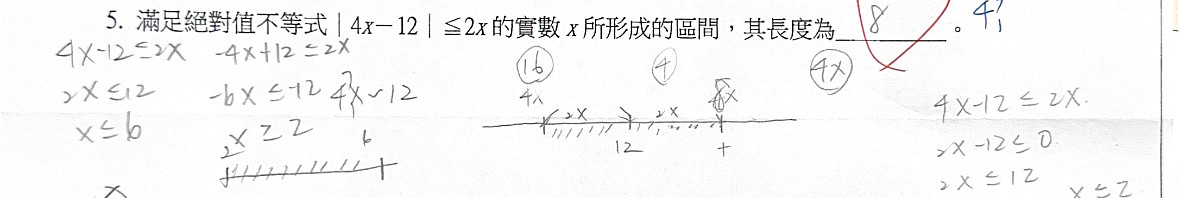 5. 滿足絕對值不等式 | 4x－12 | ≦2x 的實數 x 所形成的區間，其長度為 8 。 4
4x-12≤2x -4x+12≤2x
2x≤12 -6x≤-12 4x-12
x≤6 x≥2
2 6
16 4 4x
4x 2x 2x 8x
12 +
4x-12≤2x.
2x-12≤0
2x≤12
x≤2
x